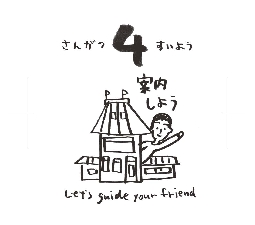 さんがつ 4 すいよう
案内
しよう
Let's guide your friend